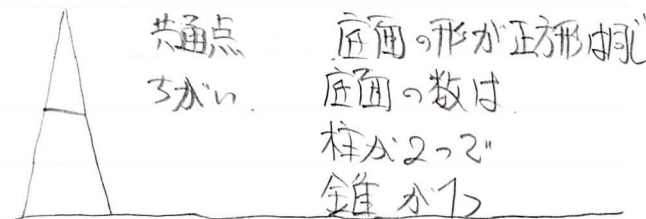 共通点 底面の形が正方形は同じ
ちがい. 底面の数は
柱が2つで
錐が1つ